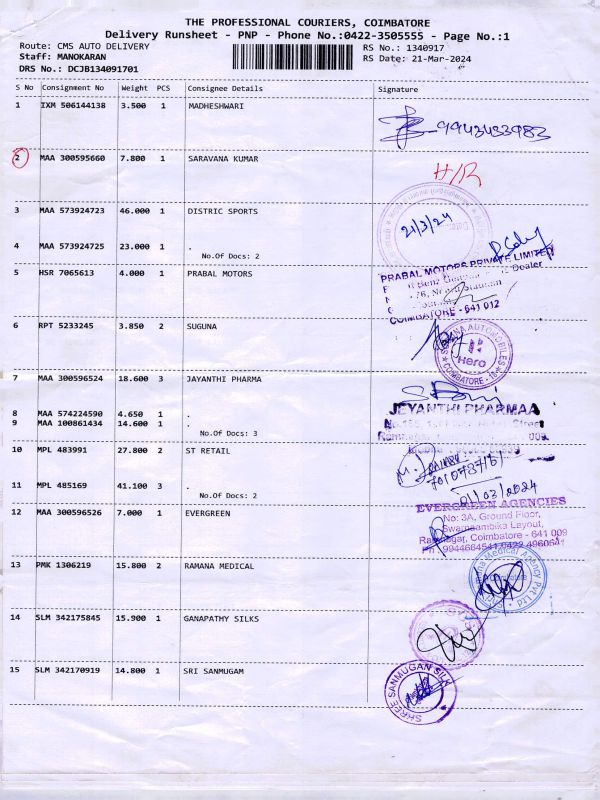 THE PROFESSIONAL COURIERS, COIMBATORE
Delivery Runsheet - PNP - Phone No.:0422-3505555 - Page No.:1
Route: CMS AUTO DELIVERY RS No.: 1340917
Staff: MANOKARAN RS Date: 21-Mar-2024
DRS No.: DCJB134091701
S No Consignment No Weight PCS Consignee Details Signature
1 IXM 506144138 3.500 1 MADHESHWARI
9943433983
2 MAA 300595660 7.800 1 SARAVANA KUMAR
H/R
3 MAA 573924723 46.000 1 DISTRIC SPORTS
21/3/24
4 MAA 573924725 23.000 1 .
No.Of Docs: 2
5 HSR 7065613 4.000 1 PRABAL MOTORS
PRABAL MOTORS PRIVATE LIMITED
Benz Dealer
COIMBATORE - 641 012
6 RPT 5233245 3.850 2 SUGUNA
AUTOMOBILES
Hero
COIMBATORE - 18
7 MAA 300596524 18.600 3 JAYANTHI PHARMA
JEYANTHI PHARMAA
Street
009.
8 MAA 574224590 4.650 1 .
9 MAA 100861434 14.600 1 .
No.Of Docs: 3
10 MPL 483991 27.800 2 ST RETAIL
11 MPL 485169 41.100 3 .
No.Of Docs: 2
03/2024
12 MAA 300596526 7.000 1 EVERGREEN
EVERGREEN AGENCIES
No: 3A, Ground Floor,
Swarnaambika Layout,
Ramnagar, Coimbatore - 641 009
Ph : 9944684541 0422 4960641
13 PMK 1306219 15.800 2 RAMANA MEDICAL
Medical Agency Pvt Ltd
14 SLM 342175845 15.900 1 GANAPATHY SILKS
15 SLM 342170919 14.800 1 SRI SANMUGAM
SHREE SANMUGAN SILK